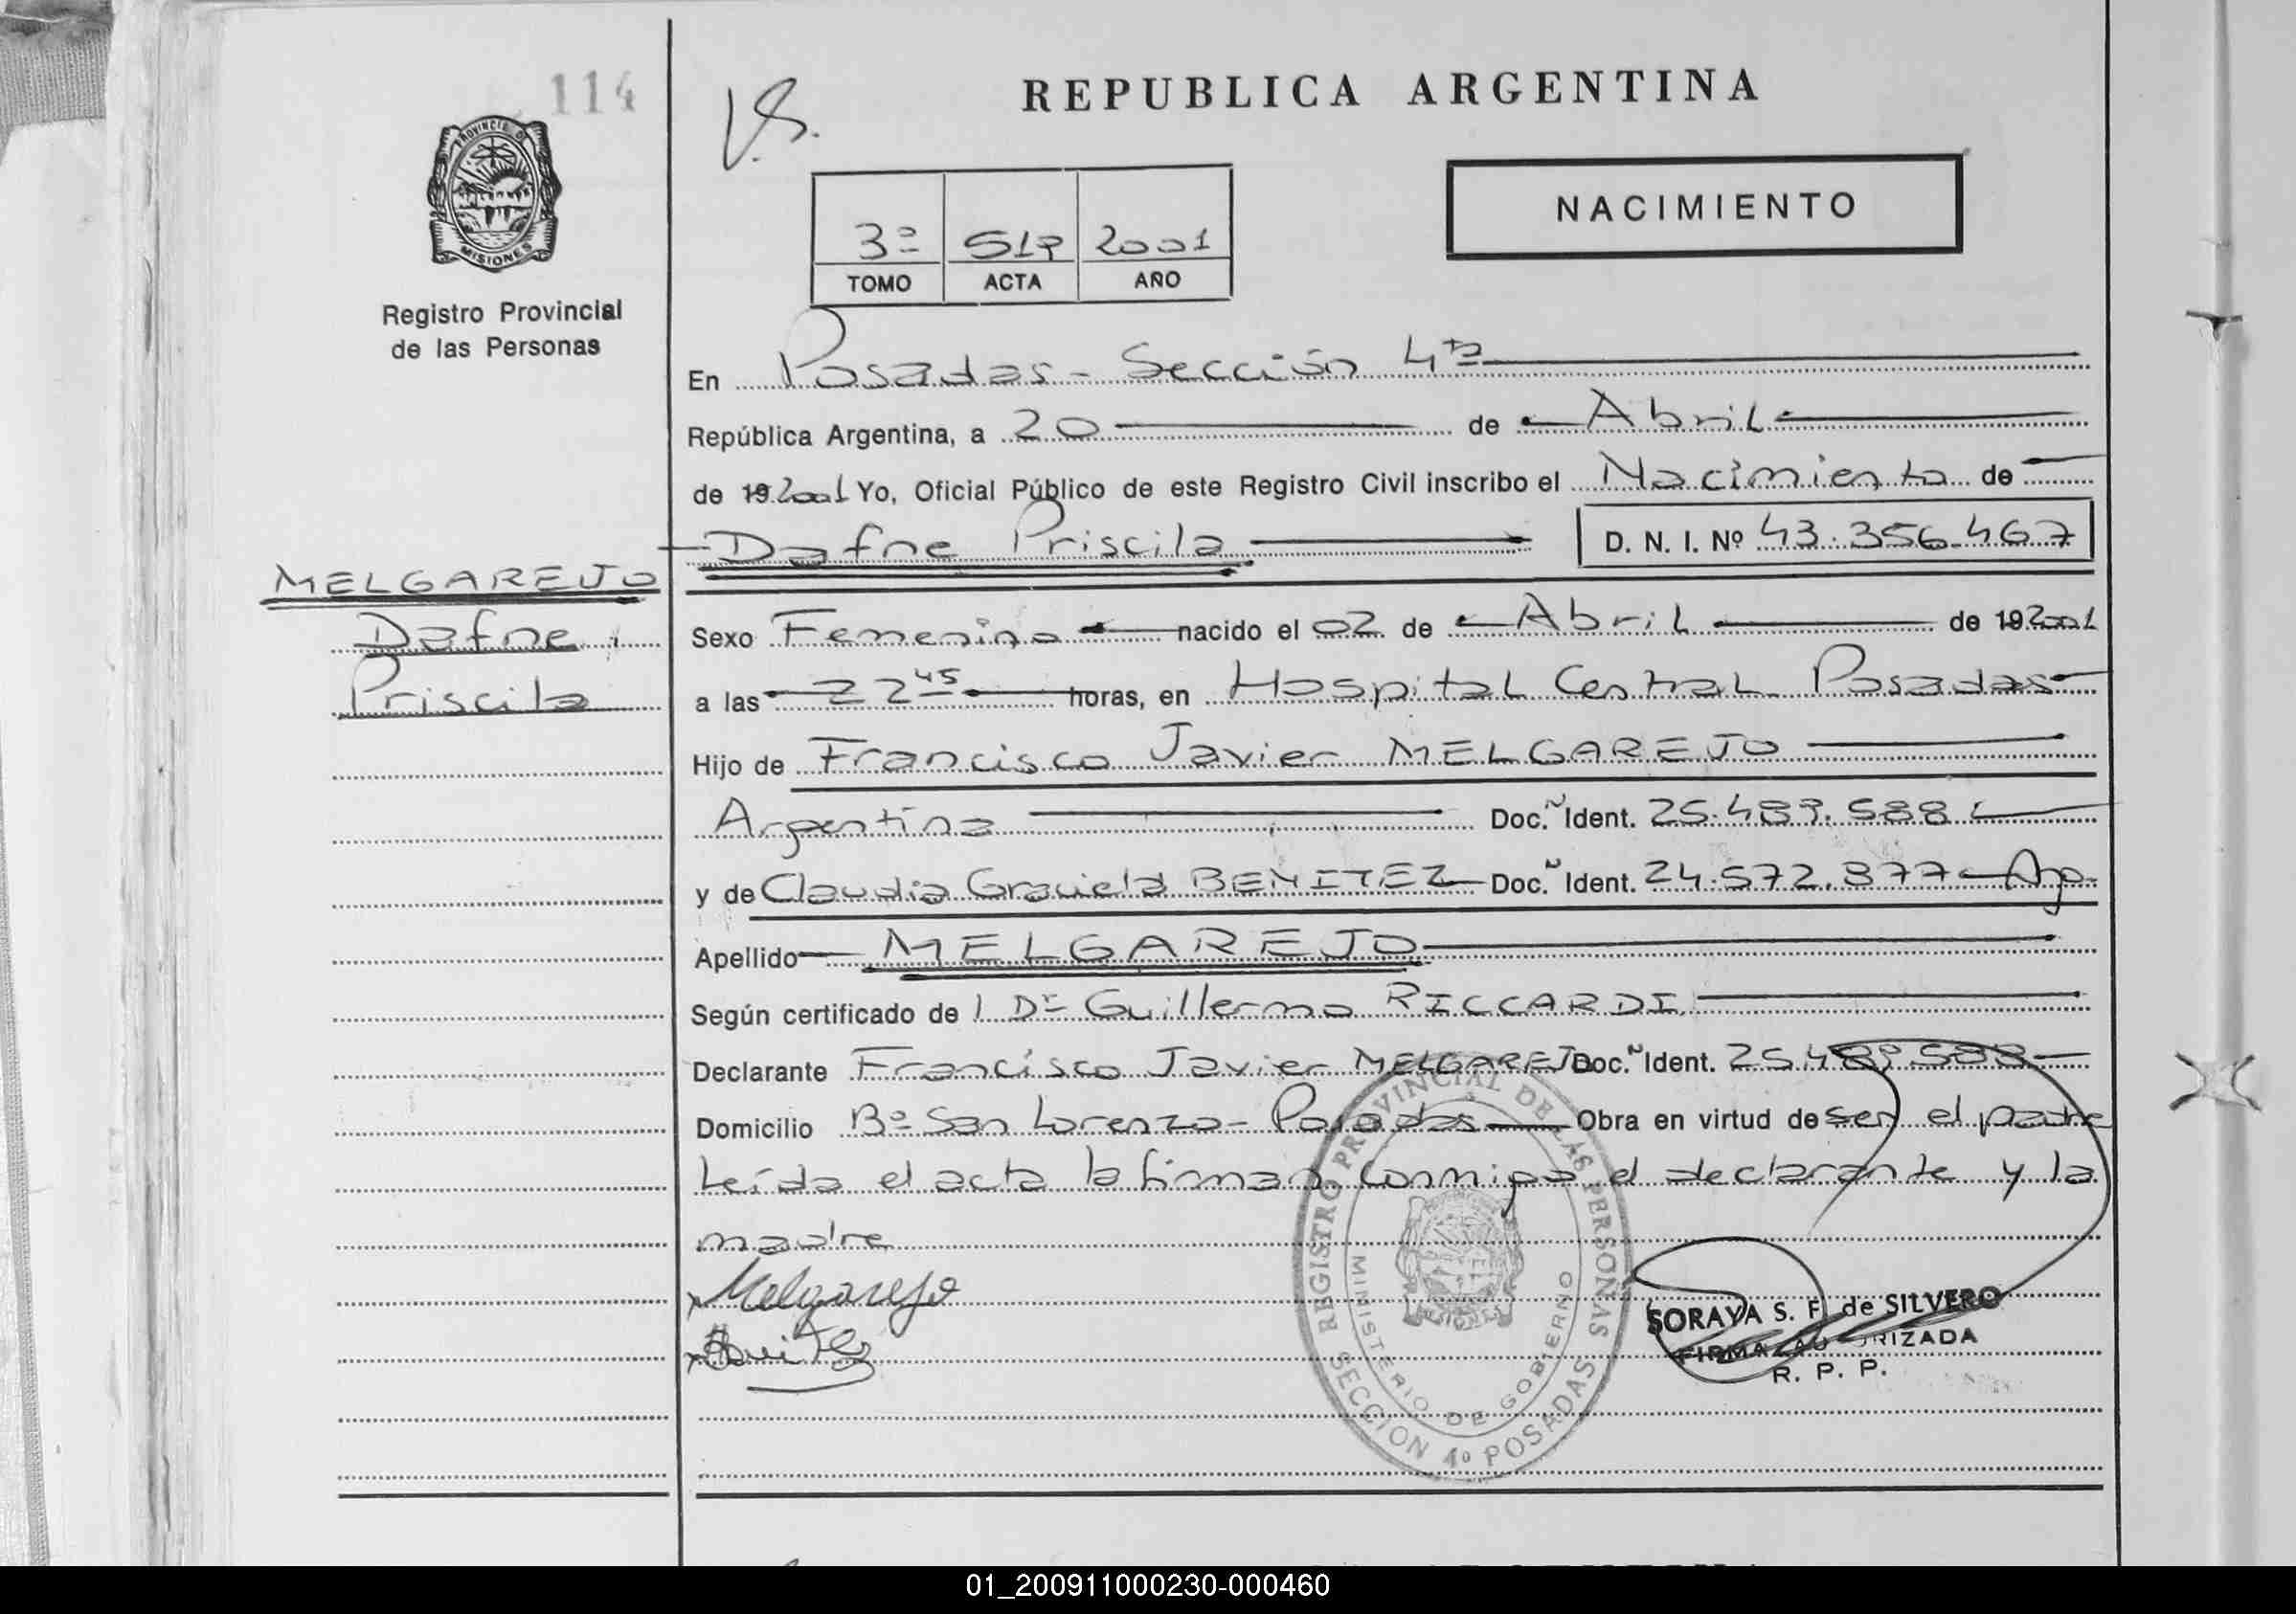 114
PROVINCIA DE
MISIONES
Registro Provincial
de las Personas
REPUBLICA ARGENTINA
NACIMIENTO
3º 519 2001
TOMO ACTA AÑO
En Posadas - Sección 4ta
República Argentina, a 20 de Abril
de 19 2001 Yo, Oficial Público de este Registro Civil inscribo el Nacimiento de
Dafne Priscila D. N. I. Nº 43.356.467
MELGAREJO
Dafne
Priscila
Sexo Femenino nacido el 02 de Abril de 19 2001
a las 22 45 horas, en Hospital Central Posadas
Hijo de Francisco Javier MELGAREJO
Argentina Doc. Ident. 25.489.588
y de Claudia Graciela BENITEZ Doc. Ident. 24.572.877 Arg.
Apellido MELGAREJO
Según certificado de l Dr Guillermo RICCARDI
Declarante Francisco Javier MELGAREJO Doc. Ident. 25.489.588
Domicilio Bº San Lorenzo - Posadas Obra en virtud de ser el padre
Leída el acta la firman conmigo el declarante y la
madre
Melgarejo
REGISTRO PROVINCIAL DE LAS PERSONAS
MINISTERIO DE GOBIERNO
SECCION 4º POSADAS
SORAYA S. F. de SILVERO
FIRMA AUTORIZADA
R. P. P.
01_200911000230-000460